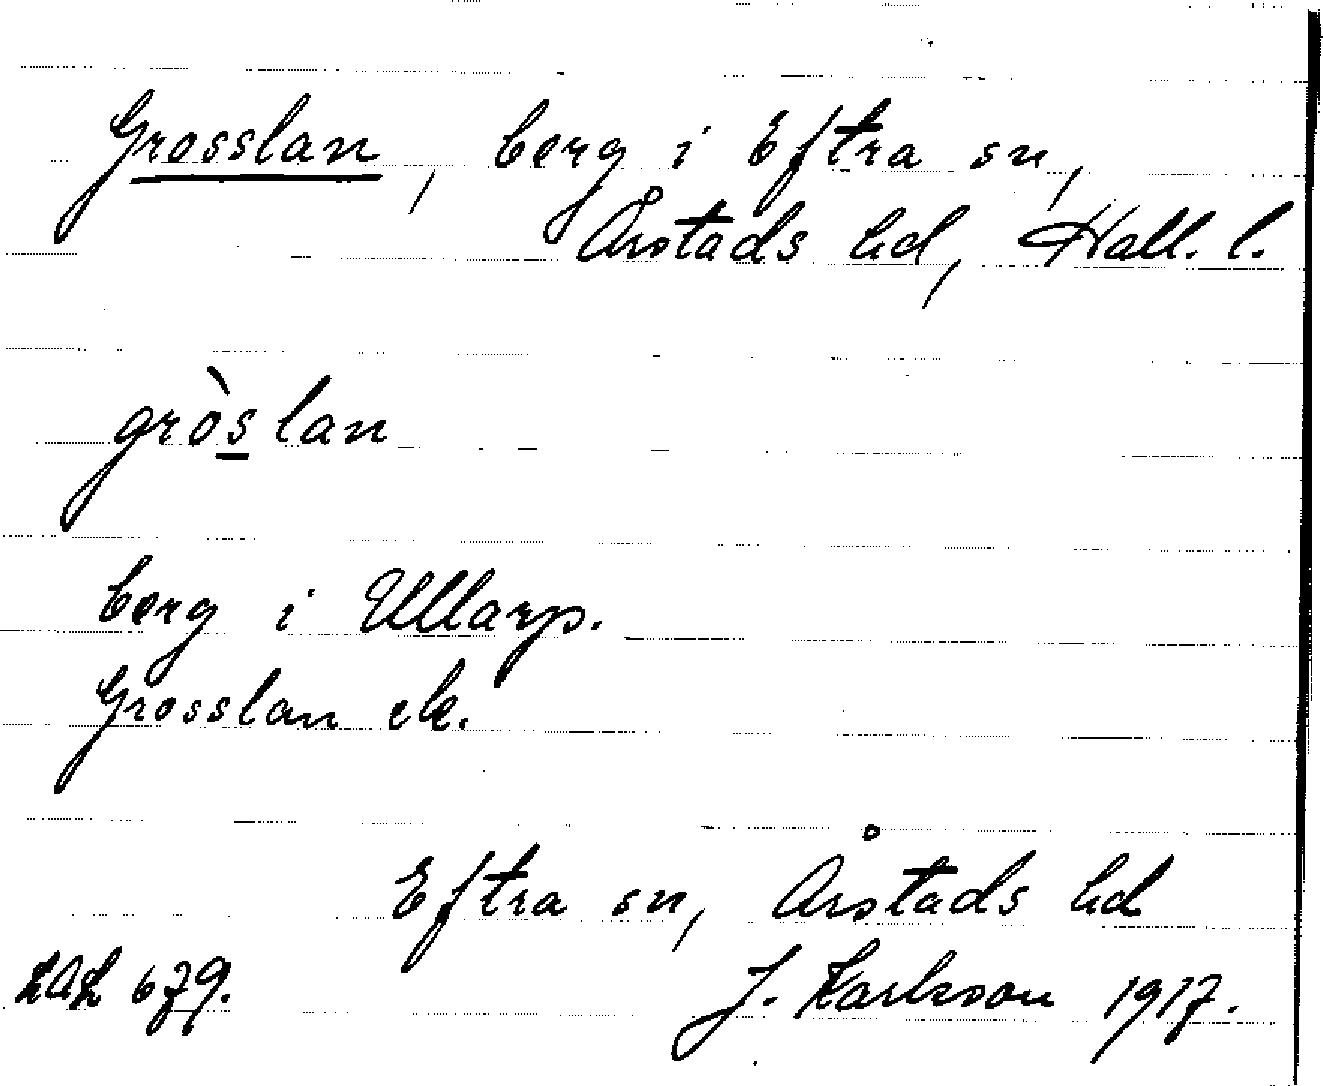 Grosslan, berg i Eftra sn,
Årstads hd, Hall. l.
gròslan
berg i Ullarp.
Grosslan ek.
Eftra sn, Årstads hd
LAL 679. J. Karlsson 1917.